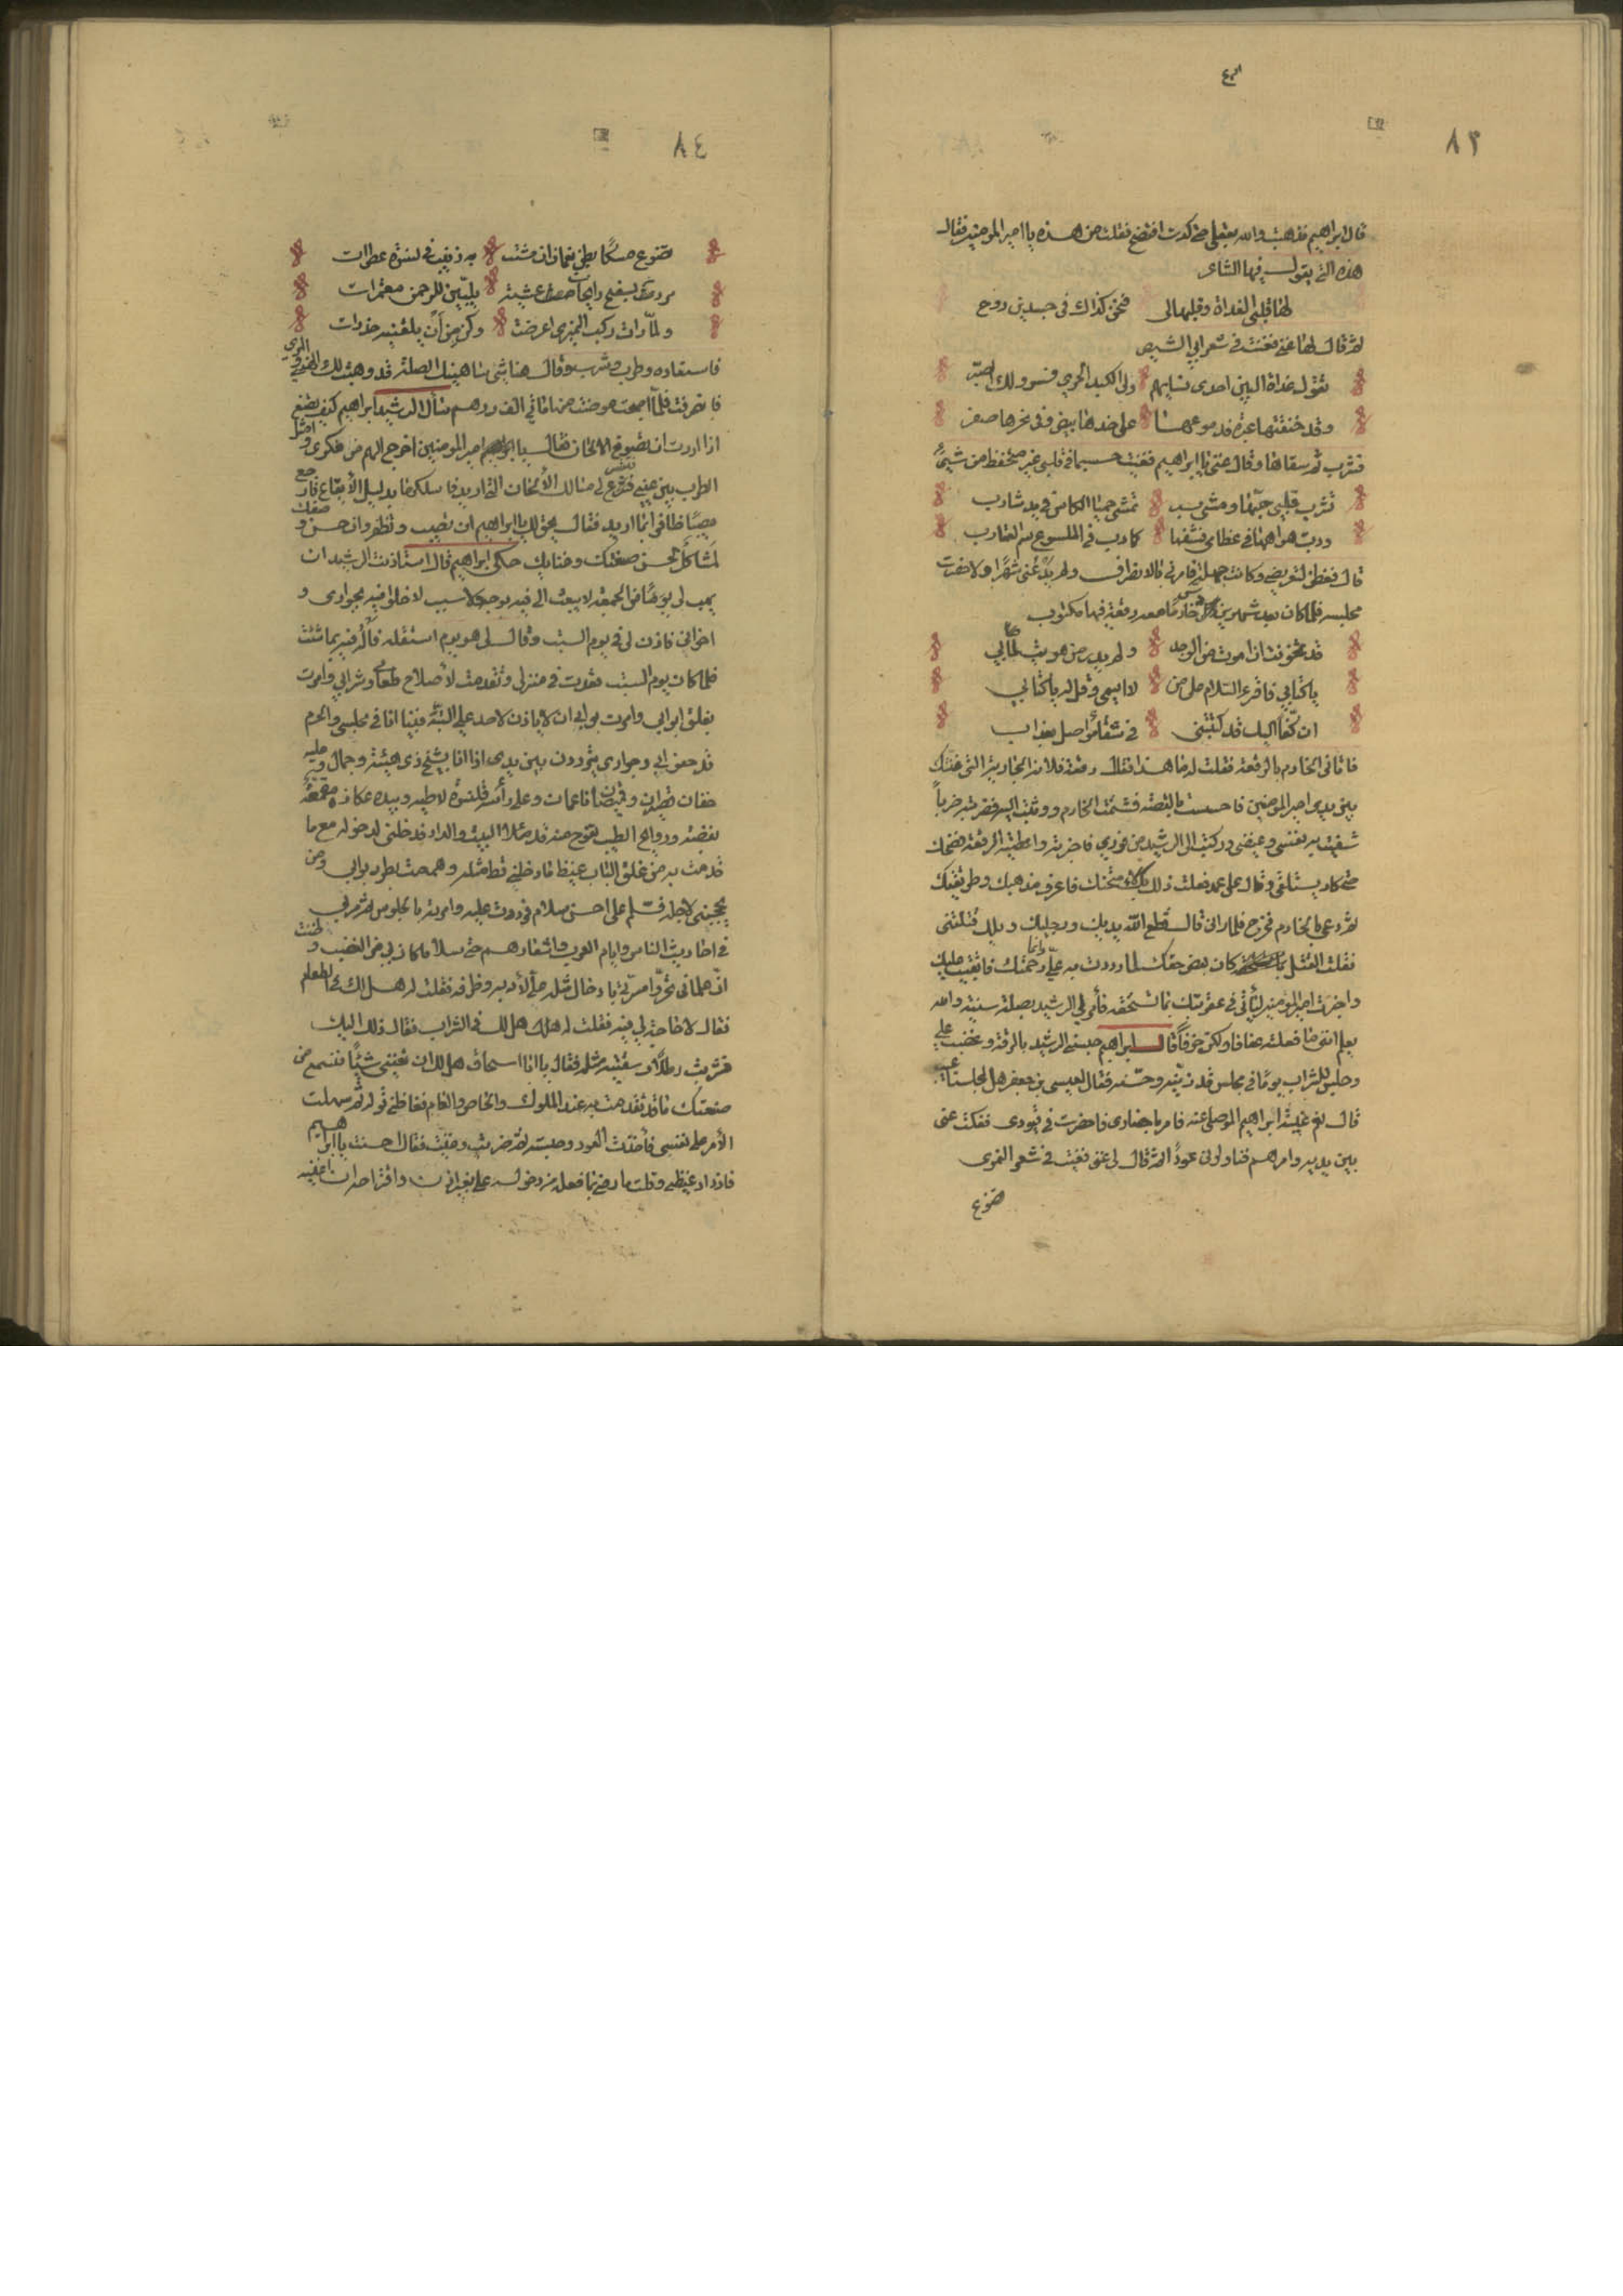 ٨٣
قال ابراهيم فذهبت والله بعقلي حتى كدت افتضح فقلت من هذه يا امير المومنين فقال
هذه التي يقول فيها الشاعر
لها قلبي الغداة وقلبها لي فنحن كذاك في جسدين روح
ثم قال لها غني فغنت في شعر ابي الشيص
تقول غداة البين احدى نسايهم ولي الكبد الحرى فسر ولك الصبر
وقد خنقتها عبرة فدموعها على خدها بيض وفي نحرها صفر
فشرب ثم سقاها وقال غن يا ابراهيم فغنيت حسبما في قلبي غير متحفظ من شيء
تشرب قلبي حبها ومشى به تمشي حميا الكاس في يد شارب
ودب هواها في عظامي فشفها كما دب في الملسوع سم العقارب
قال ففطن لتعريضي وكانت جهلة فامرني بالانصراف ولم يدعني شهرا ولا حضرت
مجلسه فلما كان بعد شهر دس الي خادما معه رقعة فيها مكتوب
قد تخوفت ان اموت من الوجد ولم يدر من هويت بما بي
يا كتابي فاقرء السلام على من لا اسمي وقل له يا كتابي
ان كفا اليك قد كتبتني في شقاء مواصل بعذاب
فاتاني الخادم بالرقعة فقلت له ما هذا فقال رقعة فلانة الجارية التي غنتك
بين يدي امير المومنين فاحسست بالقصة فشتمت الخادم ووثبت اليه فضربته ضربا
شفيت به نفسي وغيضي وركبت الى الرشيد من فوري فاخبرته واعطيته الرقعة فضحك
حتى كاد يستلقي وقال على عمد فعلت ذلك بك لامتحنك فاعرف مذهبك وطريقتك
ثم دعى بالخادم فخرج فلما راني قال قطع الله يديك ورجليك ويلك قتلتني
فقلت القتل كان بعض حقك لما وردت به علي وانما رحمتك فابقيت عليك
واخبرت امير المومنين لياتي في عقوبتك بما تستحقه فأمر لي الرشيد بصلة سنية والله
يعلم انني ما فعلته عفافا ولكن خوفا قال ابراهيم حبسني الرشيد بالرقة وغضب علي
وجلس للشراب يوما في مجلس قد زينه وحسنه فقال لعيسى بن جعفر هل لمجلسنا عيب
قال نعم غيبة ابراهيم الموصلي عنه فامر باحضاري فاحضرت في قيودي ففكت عني
بين يديه وامرهم فناولوني عودا ثم قال لي غن فغنيت في شعر النميري
تضوع
٨٤
تضوع مسكا بطن نعمان ان مشت به زينب في نسوة عطرات
مررن بفخ رايحات عشية يلبين للرحمن معتمرات
ولما رات ركب النميري اعرضت وكن من ان يلقينه حذرات
فاستعاده وطرب وشرب وقال هنا شيء ساهنيك الصلة قد وهبت لك الهني والمري
فانصرفت فلما اصبحت عوضت من مائتي الف درهم سأل الرشيد ابراهيم كيف يصنع
اذا اردت ان تصوغ الالحان فقال يا امير المومنين اخرج الهم من فكري وامثل
الطرب بين عيني فتسرع لي مسالك الألحان التي اريد فاسلكها بدليل الأيقاع فارجع
مصيبا ظافرا بما اريد فقال يحق لك يا ابراهيم ان تصيب وتظفر وان حسن وصفك
لمشاكل لحسن صنعتك وغنايك حكى ابراهيم قال استاذنت الرشيد ان
يهب لي يوما في الجمعة لا يبعث الي فيه بوجه ولا سبب لاخلو فيه بجواري و
اخواني فاذن لي في يوم السبت وقال لي هو يوم استثقله فاله فيه بما شئت
فلما كان يوم السبت بقيت في منزلي وتقدمت لأصلاح طعامي وشرابي وامرت
بغلق ابوابي وامرت بوابي ان لا ياذن لاحد علي البتة فبينا انا في مجلسي والحرم
قد حففن بي وجواري يترددن بين يدي اذا انا بشيخ ذي هيئة وجمال وعليه
خفان قصيران وقميصان ناعمان وعلى رأسه قلنسوة لاطيه وبيده عكازه مقمعة
بفضة وروايح الطيب تفوح منه قد ملأ البيت والدار فدخلني لدخوله مع ما
قدمت به من غلق الباب غيظ ما دخلني قط مثله وهممت بطرد بوابي ومن
يحجبني لاجله فسلم علي احسن سلام فرددت عليه وامرته بالجلوس ثم مر بي
في احاديث الناس وايام العرب واشعارهم حتى سلا ما كان بي من الغضب وظننت
ان غلماني تحروا مسرتي بادخال مثله علي لأدبه وظرفه فقلت له هل لك في الطعام
فقال لا حاجة لي فيه فقلت له هل لك في الشراب فقال ذلك اليك
فشربت رطلا وسقيته مثله فقال يا ابا اسحاق هل لك ان تغنيني شيئا فنسمع من
صنعتك ما قد تقدمت به عند الملوك والخاص والعام فغاظني قوله ثم سهلت
الأمر على نفسي فأخذت العود وجسسته ثم ضربت وغنيت فقال احسنت يا ابراهيم
فازداد غيظي وقلت ما رضي بما فعله من دخوله علي بغير اذن واقتراحه ان اغنيه